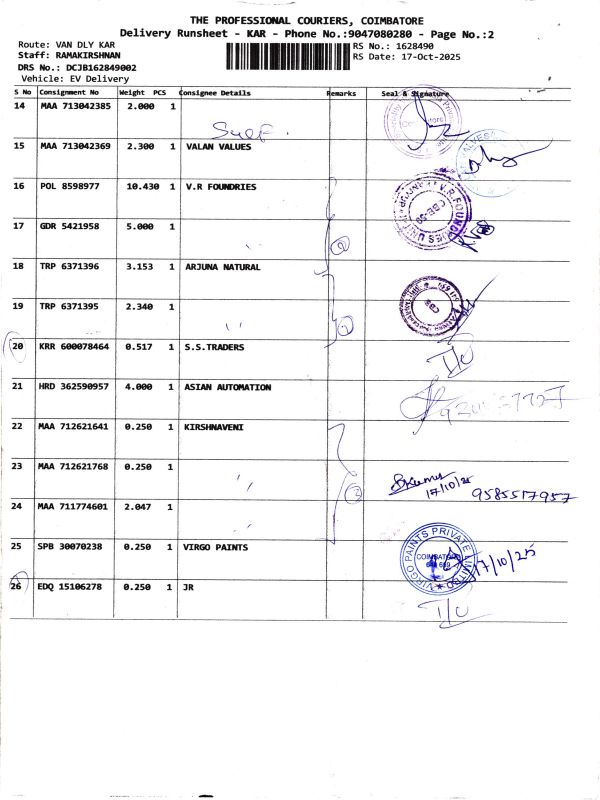 THE PROFESSIONAL COURIERS, COIMBATORE
Delivery Runsheet - KAR - Phone No.:9047080280 - Page No.:2
Route: VAN DLY KAR
RS No.: 1628490
Staff: RAMAKIRSHNAN
RS Date: 17-Oct-2025
DRS No.: DCJB162849002
Vehicle: EV Delivery
S No Consignment No Weight PCS Consignee Details Remarks Seal & Signature
14 MAA 713042385 2.000 1
15 MAA 713042369 2.300 1 VALAN VALUES
16 POL 8598977 10.430 1 V.R FOUNDRIES
V.R.FOUNDRIES UNIT
CBE-50
17 GDR 5421958 5.000 1 "
18 TRP 6371396 3.153 1 ARJUNA NATURAL
19 TRP 6371395 2.340 1 "
CBE
20 KRR 600078464 0.517 1 S.S.TRADERS
21 HRD 362590957 4.000 1 ASIAN AUTOMATION
22 MAA 712621641 0.250 1 KIRSHNAVENI
23 MAA 712621768 0.250 1 "
17/10/25
9585517957
24 MAA 711774601 2.047 1 "
25 SPB 30070238 0.250 1 VIRGO PAINTS
VIRGO PAINTS PRIVATE LIMITED
COIMBATORE
17/10/25
26 EDQ 15106278 0.250 1 JR